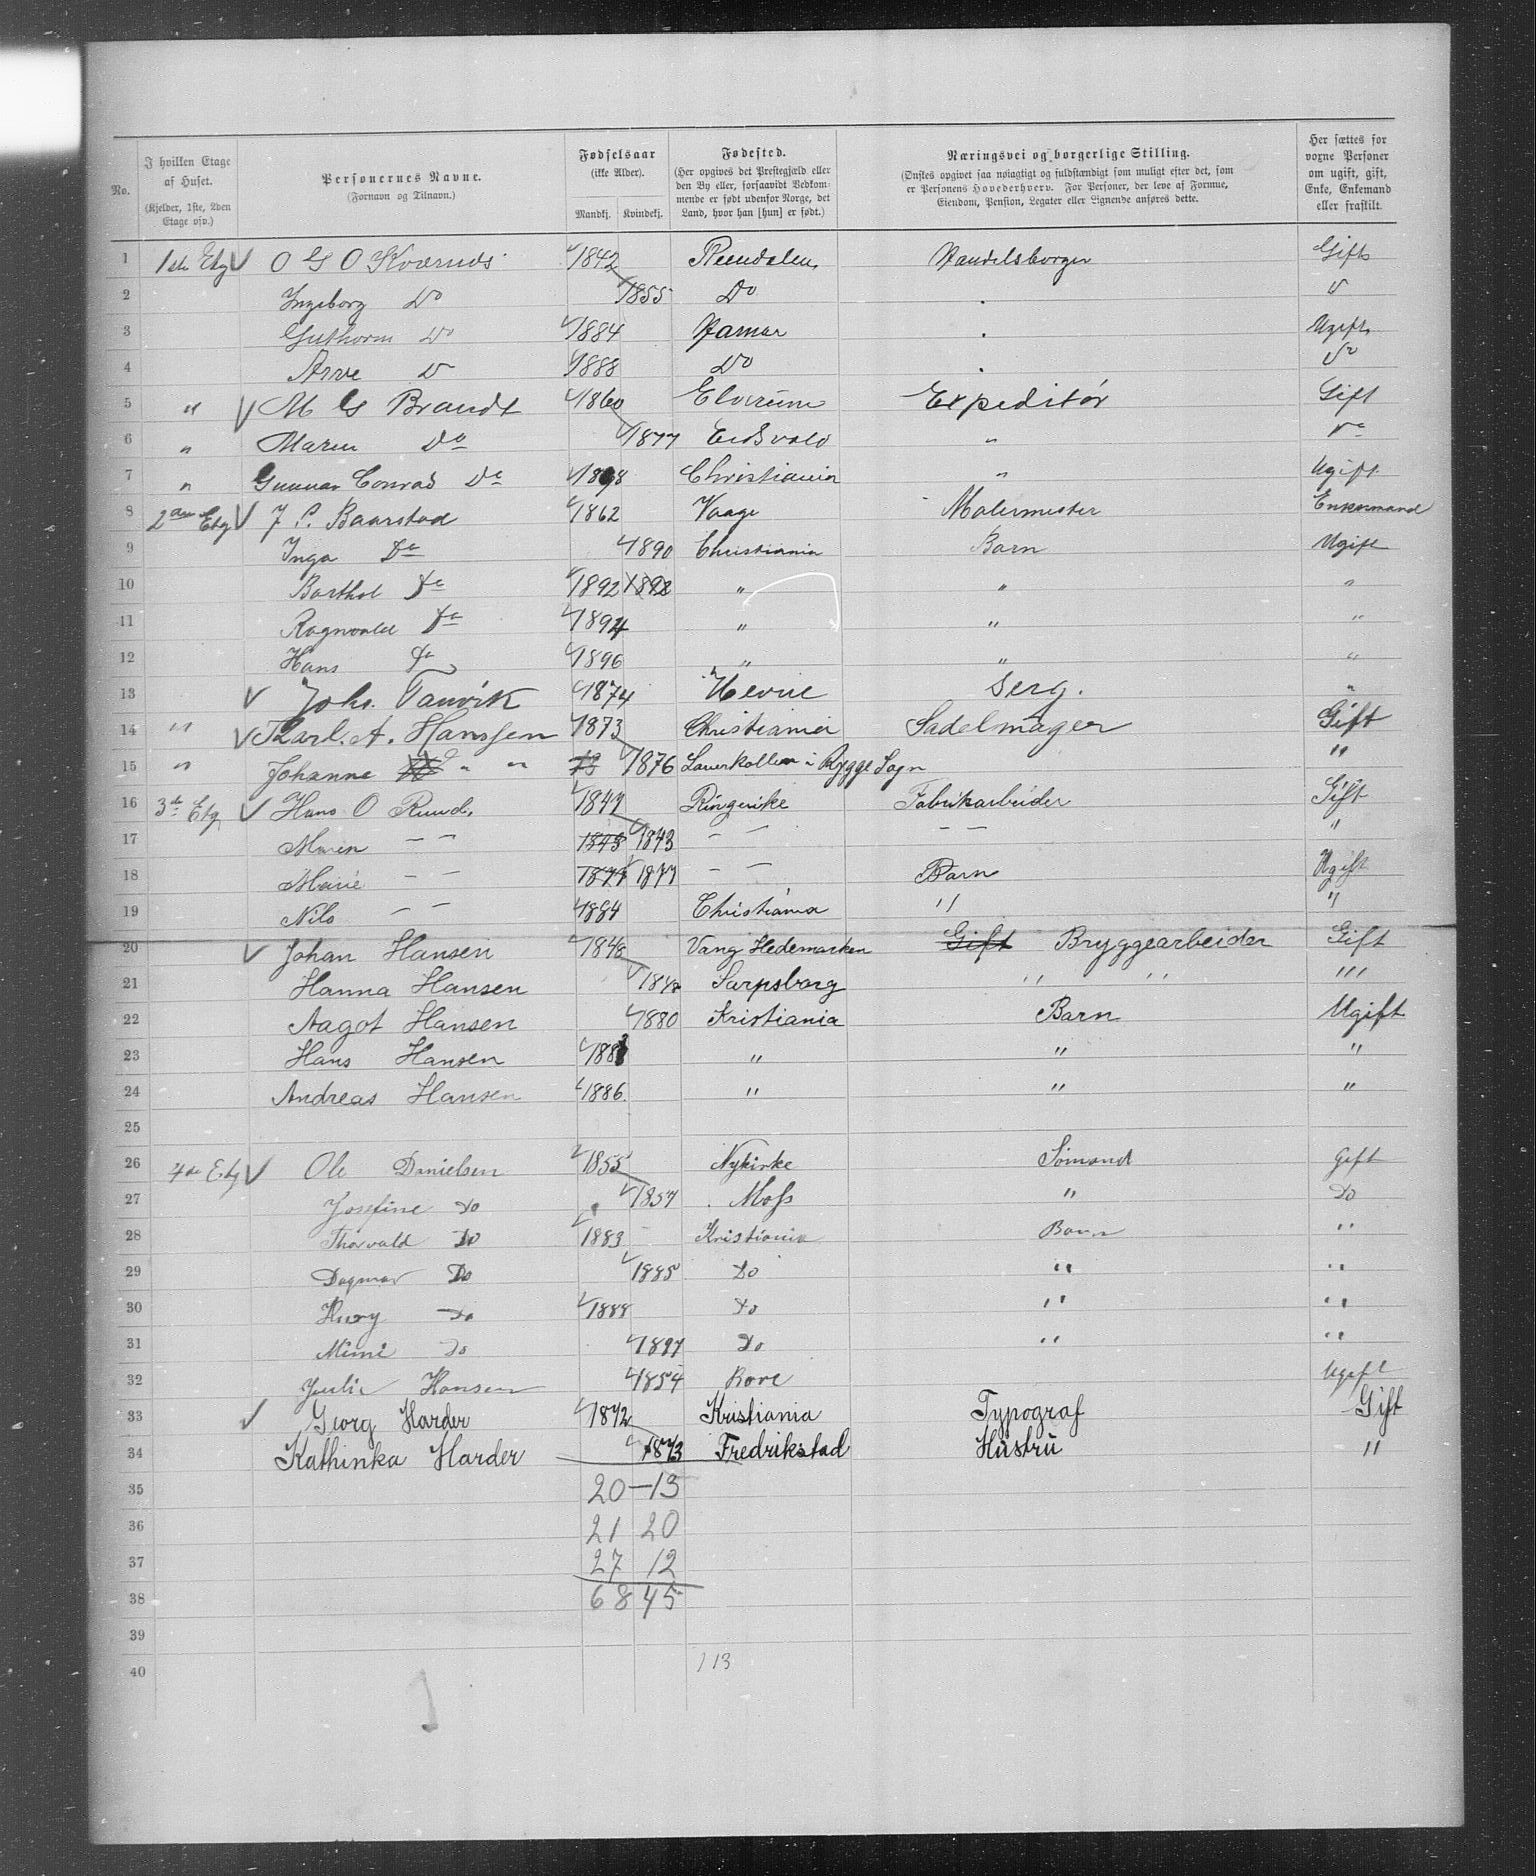 No. | I hvilken Etage af Huset. (Kjelder, 1ste, 2den Etage osv.) | Personernes Navne. (Fornavn og Tilnavn.) | Fødselsaar (ikke Alder). Mandkj. Kvindekj. | Fødested. (Her opgives det Prestegjæld eller den By eller, forsaavidt Vedkommende er født udenfor Norge, det Land, hvor han [hun] er født.) | Næringsvei og borgerlige Stilling. (Ønskes opgivet saa nøiagtigt og fuldstændigt som muligt efter det, som er Personens Hovederhverv. For Personer, der leve af Formue, Eiendom, Pension, Legater eller Lignende anføres dette. | Her sættes for voxne Personer om ugift, gift, Enke, Enkemand eller fraskilt.
1 1ste Etg O G O Kværnds 1842 Reendalen Handelsborger Gift
2 Ingeborg Do 1855 Do "
3 Guthorm Do 1884 Hamar Ugift
4 Arve D 1888 Do Do
5 " M G Brandt 1860 Elverum Expeditør Gift
6 " Maren Do 1877 Eidsvold " Do
7 " Gunnar Conrad Do 1898 Christiania " Ugift
8 2den Etg J. P. Baarstad 1862 Vaage Malermester Enkemand
9 Inga Do 1890 Christiania Barn Ugift
10 Barthol Do 1892 1892 " " "
11 Ragnvald Do 1894 " " "
12 Hans Do 1896 " " "
13 Johs. Tanvik 1874 Hevne Serg. "
14 " Karl. A. Hanssen 1873 Christiania Sadelmager Gift
15 " Johanne " " 18 1876 Laurkollen i Rygge Sogn "
16 3de Etg Hans O Ruud, 1841 Ringerike Fabrikarbeider Gift
17 Maren " " 1843 1843 " " " " "
18 Marie " " 1877 1877 " " Barn Ugift
19 Nils " " 1884 Christiania " "
20 Johan Hansen 1848 Vang Hedemarken Gift Bryggearbeider Gift
21 Hanna Hansen 1848 Sarpsborg " " "
22 Aagot Hansen 1880 Kristiania Barn Ugift
23 Hans Hansen 1883 " " "
24 Andreas Hansen 1886 " " "
25
26 4de Etg Ole Danielsen 1855 Nykirke Sømand Gift
27 Josefine Do 1857 Moss " Do
28 Thorvald Do 1883 Kristiania Barn "
29 Dagmar Do 1885 Do " "
30 Harry Do 1888 Do " "
31 Mimi Do 1897 Do " "
32 Julie Hansen 1854 Borre Ugift
33 Georg Harder 1872 Kristiania Typograf Gift
34 Kathinka Harder 1873 Fredrikstad Hustru "
35 20 – 13
36 21 20
37 27 12
38 68 45
39
40 113